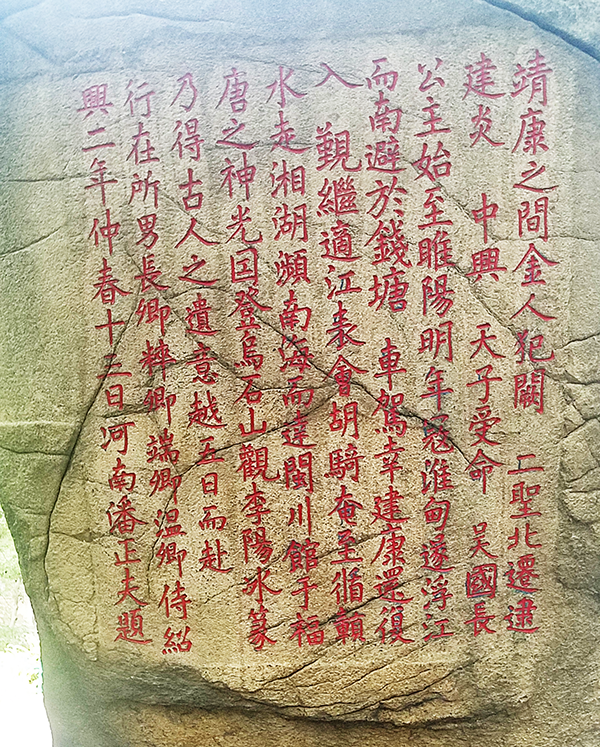 靖康之間金人犯闕 二聖北遷逮
建炎 中興 天子受命 吴國長
公主始至睢陽明年冦淮甸遂浮江
而南避於錢塘 車駕幸建康還復
入 覲繼適江表會胡騎奄至循贛
水走湘湖瀕南海而達閩川館于福
唐之神光因登烏石山觀李陽冰篆
乃得古人之遺意越五日而赴
行在所男長卿粹卿端卿温卿侍紹
興二年仲春十三日河南潘正夫題